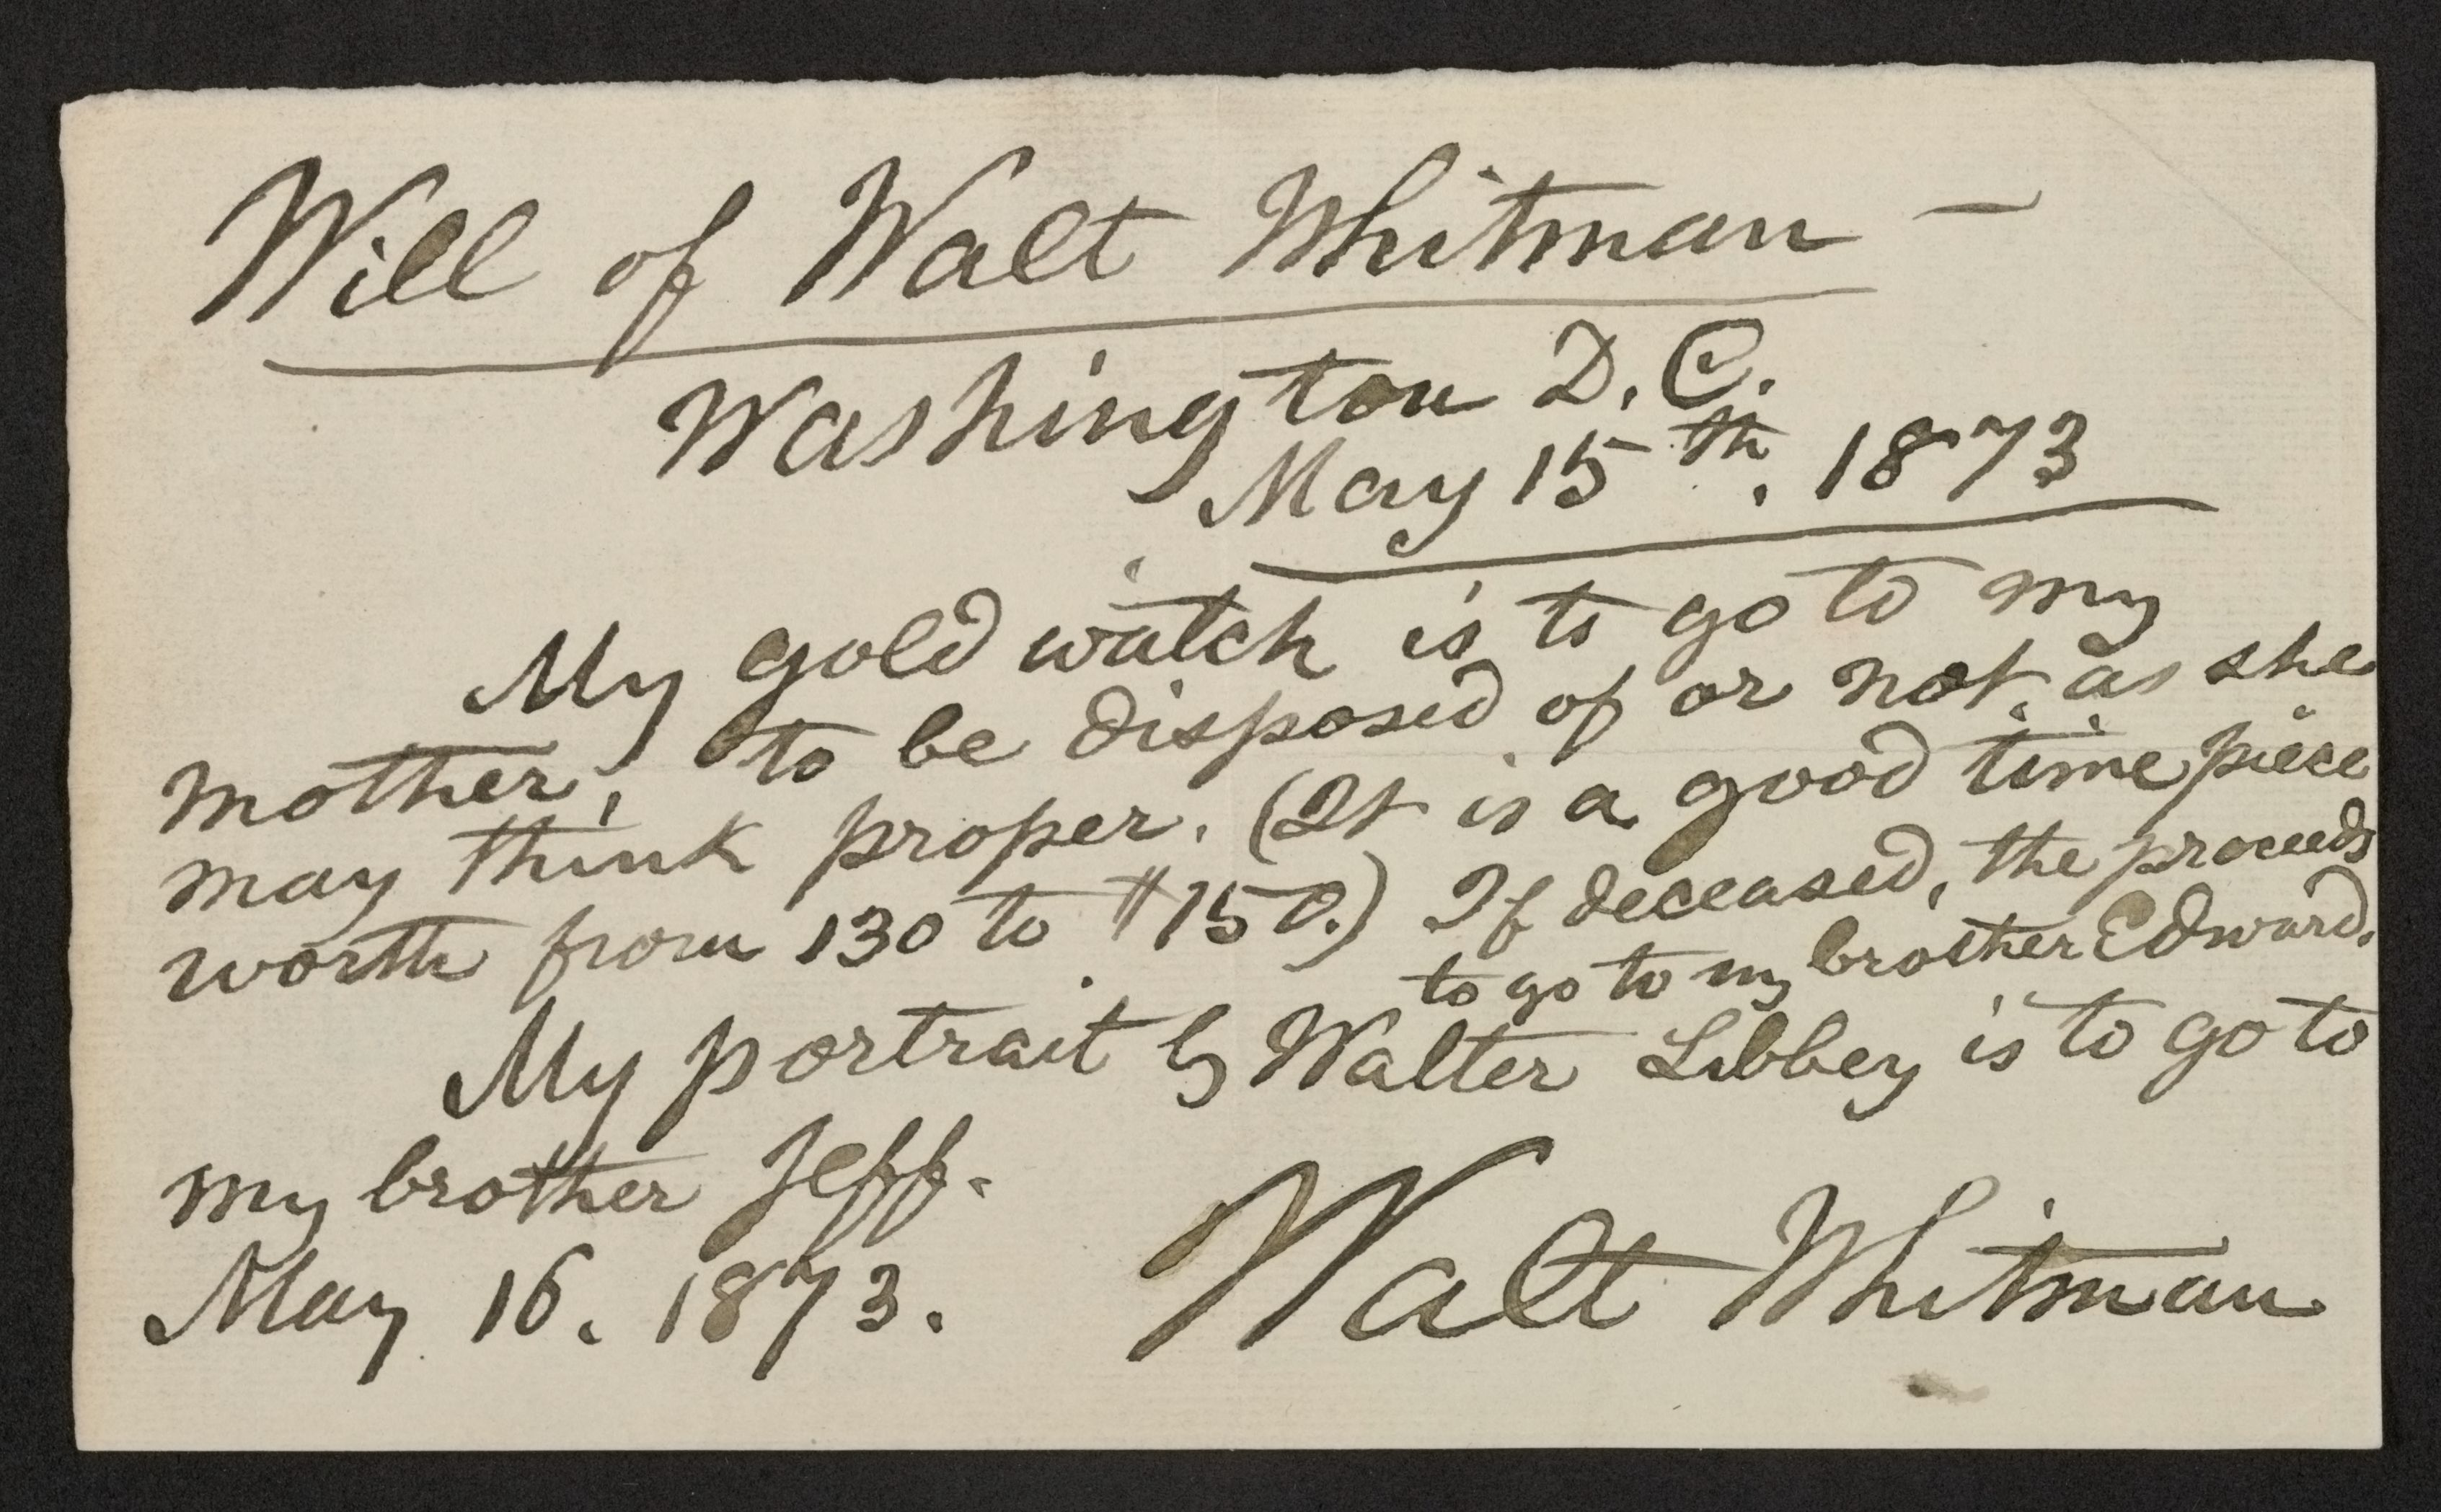 Will of Walt Whitman —
Washington D.C.
May 15th, 1873
My gold watch is to go to my
mother, to be disposed of or not, as she
may think proper. (It is a good time piece
worth from 130 to $150.) If deceased, the proceeds
to go to my brother Edward.
My portrait by Walter Libbey is to go to
my brother Jeff.
May 16. 1873. Walt Whitman